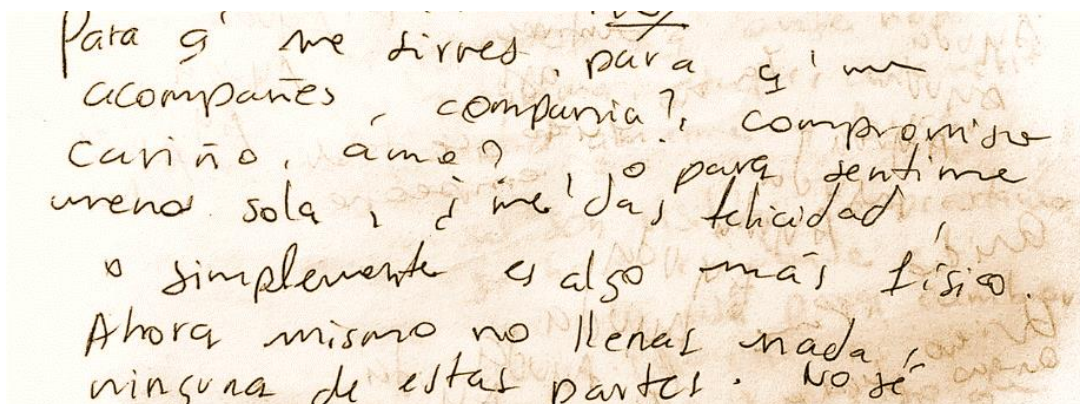 Para q' me sirves, para q' me
acompañes, compania?, compromiso
cariño, amo? o para sentirme
menos sola, ¿me das felicidad,
o simplemente es algo más físico.
Ahora mismo no llenas nada,
ninguna de estas partes. No sé